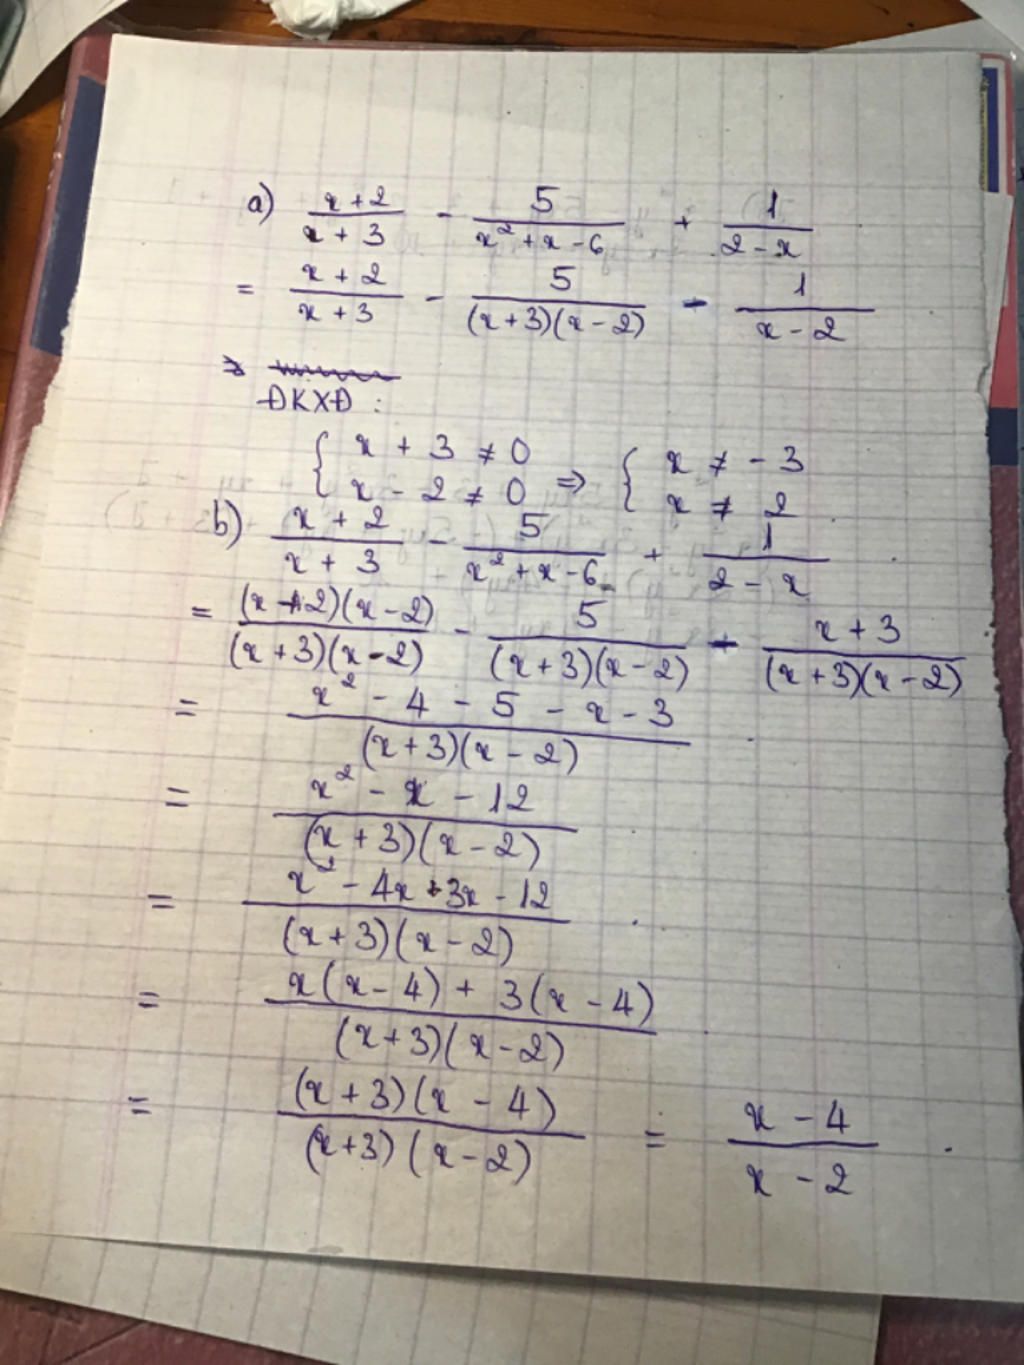 a) (x + 2)/(x + 3) - 5/(x² + x - 6) + 1/(2 - x)
= (x + 2)/(x + 3) - 5/((x + 3)(x - 2)) - 1/(x - 2)
ĐKXĐ :
{ x + 3 ≠ 0 ; x - 2 ≠ 0 ⇒ { x ≠ - 3 ; x ≠ 2
b) (x + 2)/(x + 3) - 5/(x² + x - 6) + 1/(2 - x)
= ((x + 2)(x - 2))/((x + 3)(x - 2)) - 5/((x + 3)(x - 2)) - (x + 3)/((x + 3)(x - 2))
= (x² - 4 - 5 - x - 3)/((x + 3)(x - 2))
= (x² - x - 12)/((x + 3)(x - 2))
= (x² - 4x + 3x - 12)/((x + 3)(x - 2))
= (x(x - 4) + 3(x - 4))/((x + 3)(x - 2))
= ((x + 3)(x - 4))/((x + 3)(x - 2)) = (x - 4)/(x - 2) .